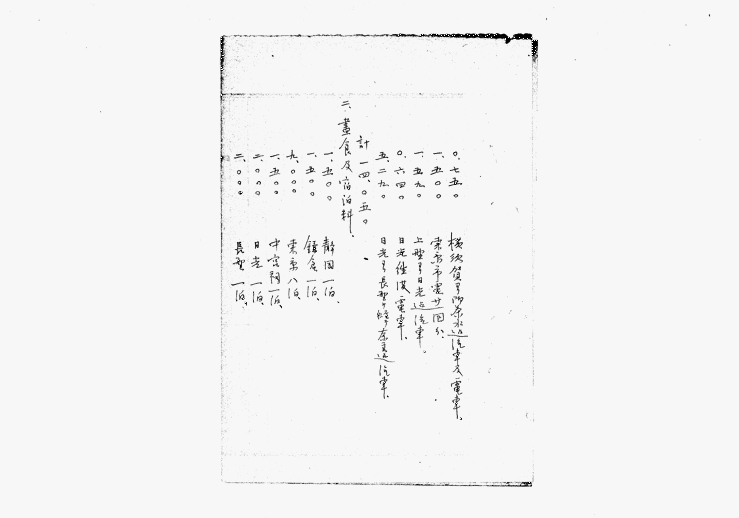 〇、七五〇 橫須賀ヨリ御茶水迄汽車及電車、
一、五〇〇 東京市電廿回分、
一、五九〇 上野ヨリ日光迄汽車。
〇、六四〇 日光往復電車、
五、二九〇 日光ヨリ長野ヲ経テ奈良迄汽車、
計 一四、〇五〇
二、晝食及宿泊料、
一、五〇〇 靜岡一泊、
一、五〇〇 鎌倉一泊、
九、〇〇〇 東京八泊、
一、五〇〇 中宮祠一泊、
二、〇〇〇 日光一泊、
二、〇〇〇 長野一泊、